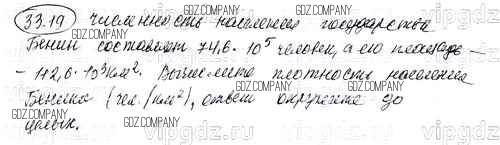 33.19 Численность населения государства
Бенин составляет 74,6 · 10⁵ человек, а его площадь –
– 112,6 · 10³ км². Вычислите плотность населения
Бенина (чел./км²), ответ округлите до
целых.
GDZ.COMPANY GDZ.COMPANY GDZ.COMPANY
GDZ.COMPANY GDZ.COMPANY GDZ.COMPANY
vipgdz.ru vipgdz.ru vipgdz.ru